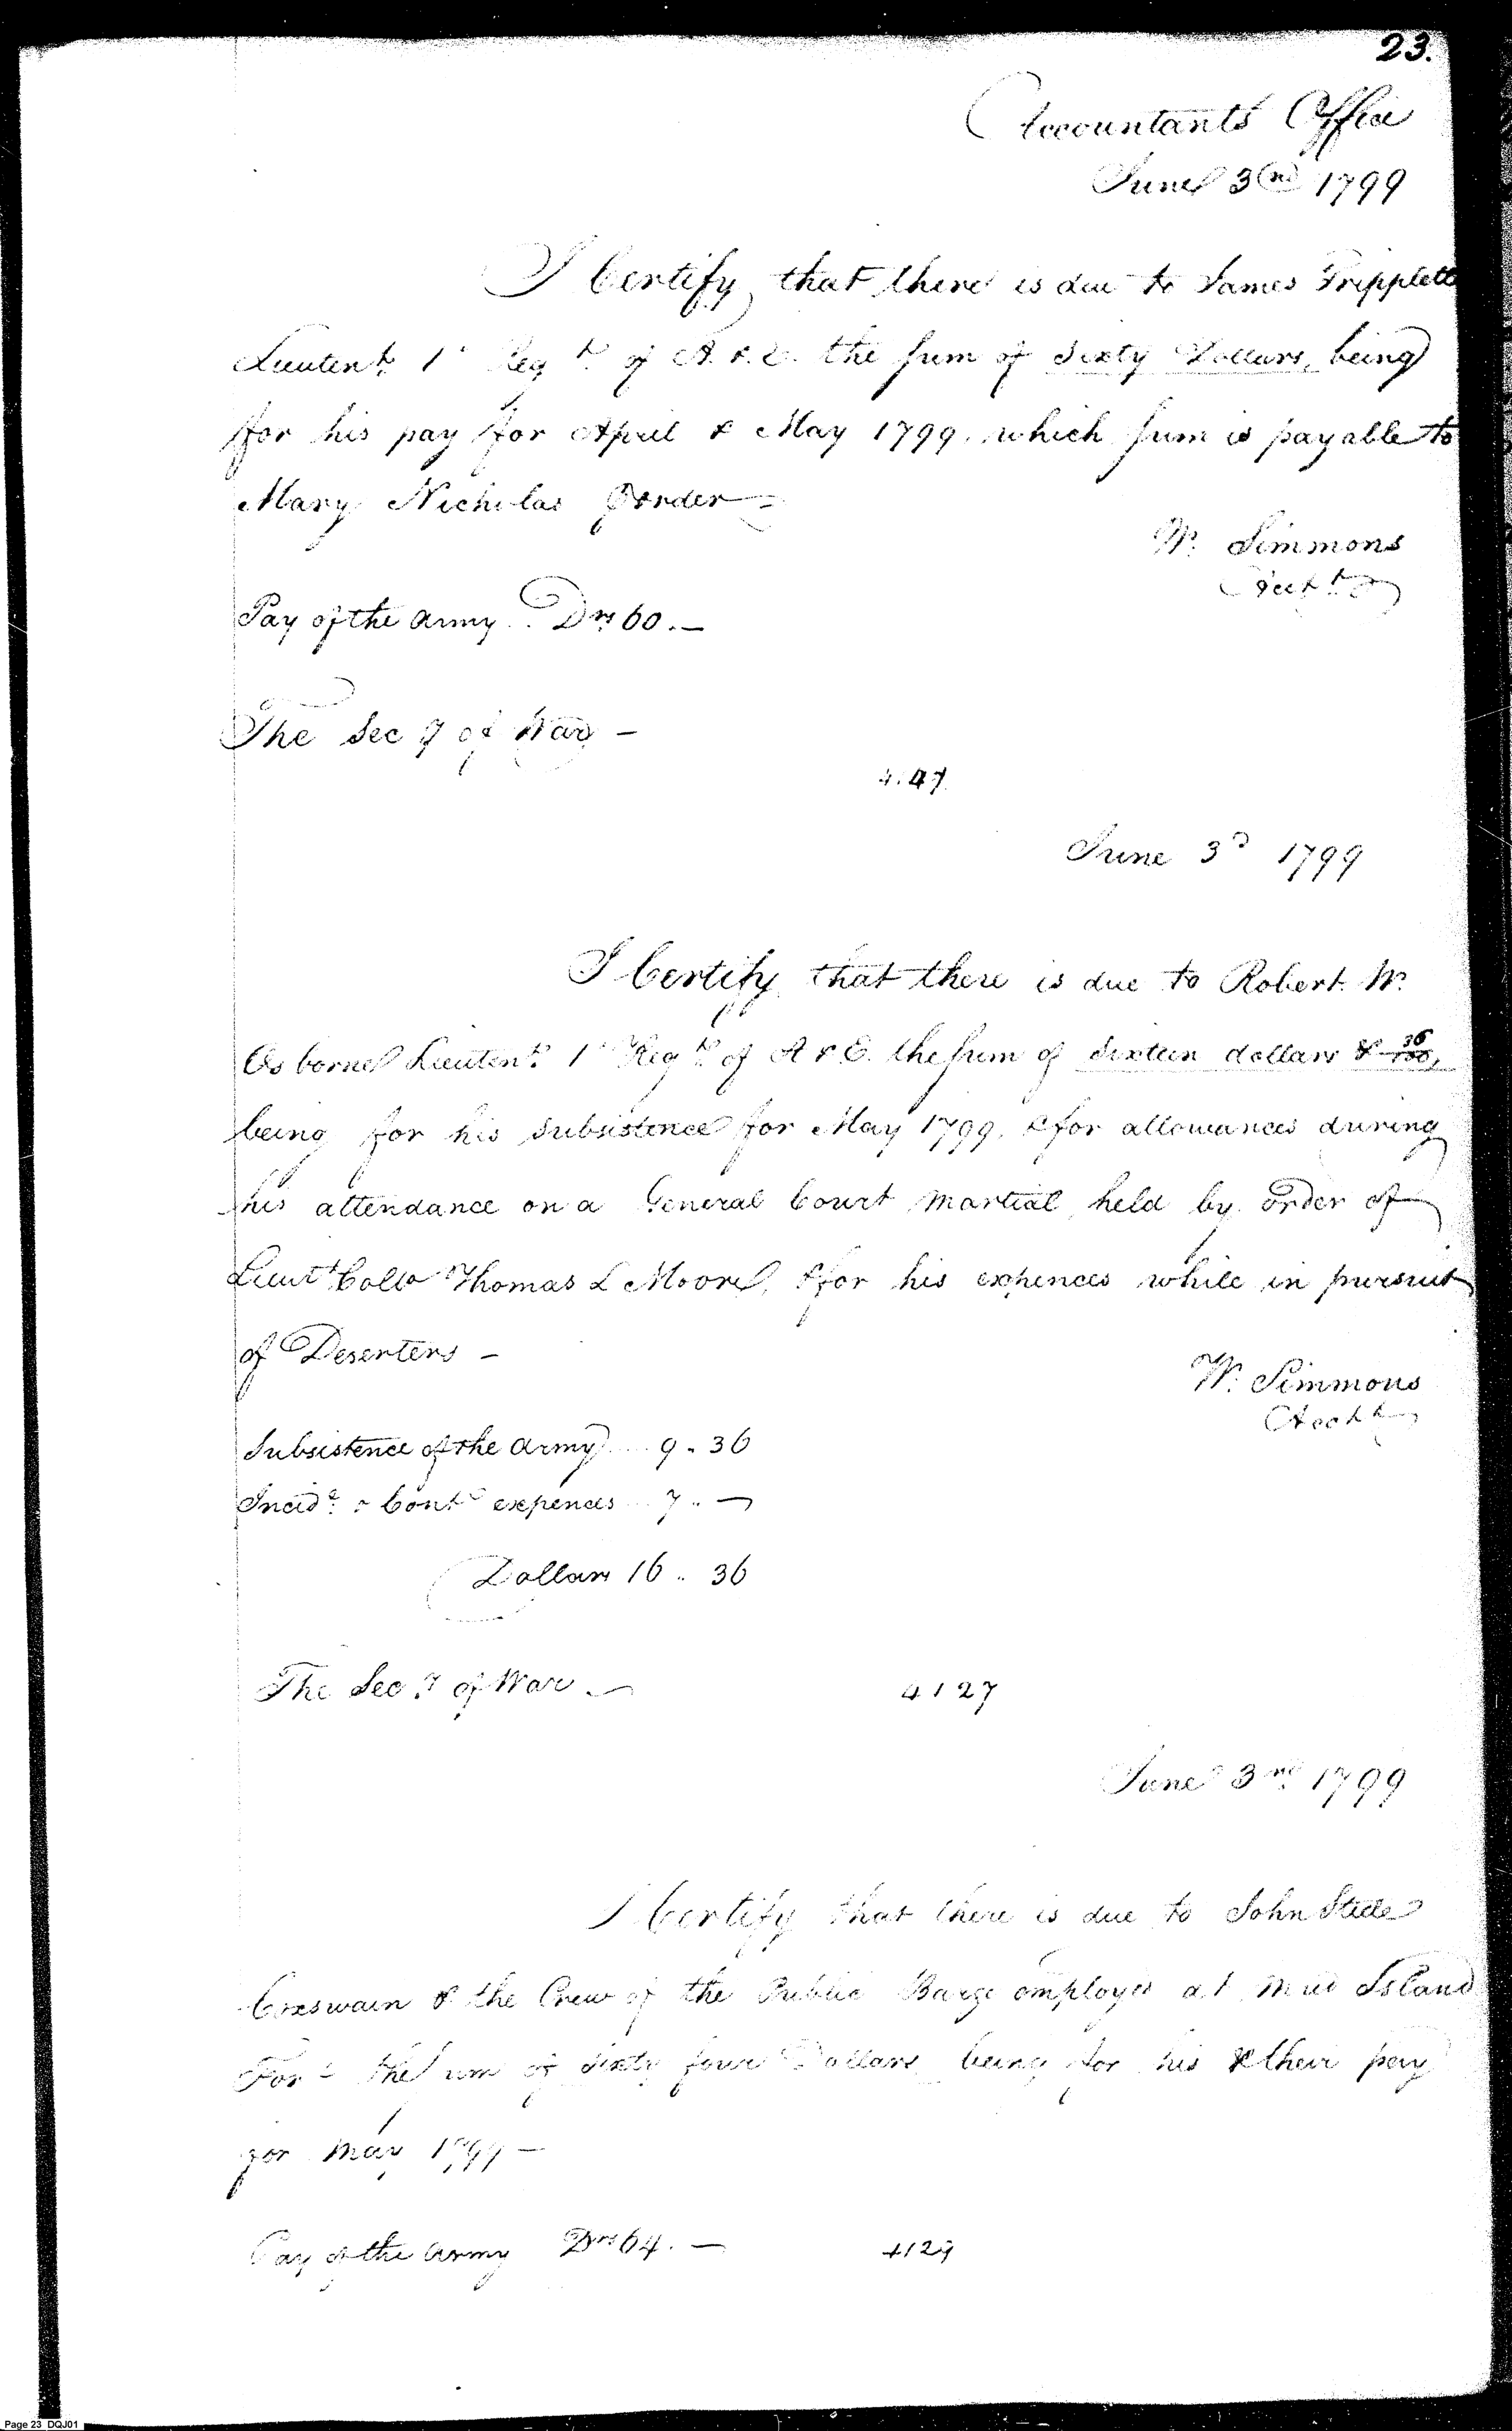 23.
Accountants Office
June 3rd 1799
I Certify that there is due to James Tripplett
Lieutent. 1st Regt. of A. & E. the sum of Sixty Dollars, being
for his pay for April & May 1799. which sum is payable to
Mary Nicholas order
W. Simmons
Acctt.
Pay of the army .. Drs 60. —
The Secy of War —
June 3d 1799
I Certify that there is due to Robert W.
Osborne Lieutent. 1st Regt. of A & E. the sum of Sixteen dollars & 36/100,
being for his subsistence for May 1799. & for allowances during
his attendance on a General Court Martial held by order of
Lieut Collo Thomas L Moore, & for his expences while in pursuit
of Deserters —
W. Simmons
Acctt
Subsistence of the army .... 9 .. 36
Incidt. & Contt expences ... 7 .. —
Dollars 16 .. 36
The Secy of War —
4127
June 3rd 1799
I Certify that there is due to John Steele
Coxswain & the Crew of the Public Barge employed at Mud Island
For - the sum of sixty four Dollars being for his & their pay
for May 1799 —
Pay of the army Drs 64. —
4129
Page 23 DQJ01